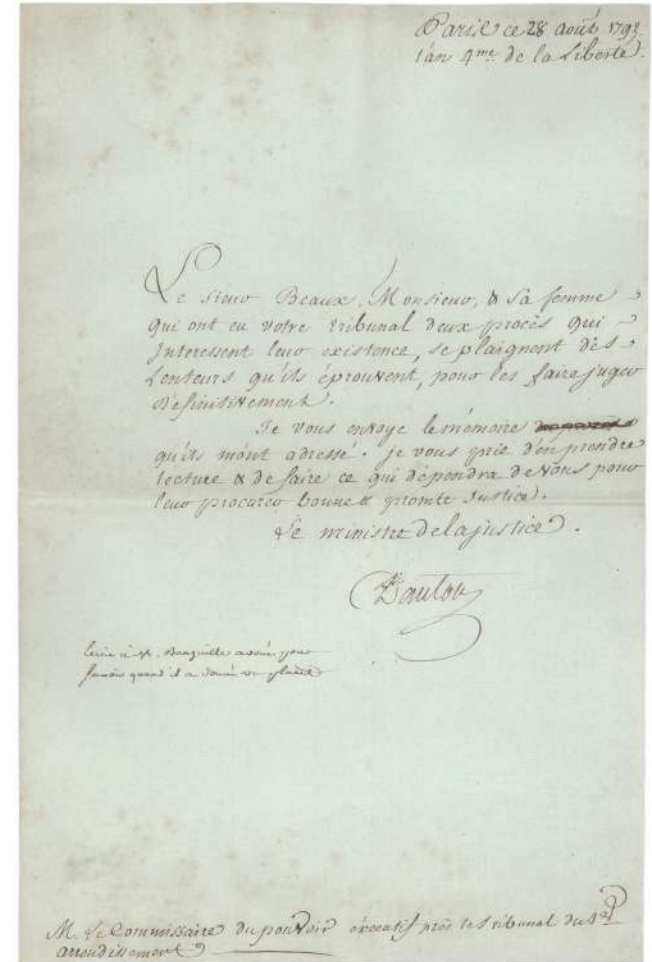 Paris ce 28 août 1792.
l'an 4.me de la Liberté.
Le Sieur Beaux, Monsieur, & Sa femme
qui ont en votre tribunal deux procès qui
Interessent leur existence, se plaignent des
Lenteurs qu'ils éprouvent, pour les faire juger
définitivement.
Je vous envoye le mémoire
qu'ils m'ônt adressé. je vous prie d'en prendre
lecture & de faire ce qui dépendra de Vous pour
leur procurer bonne & promte Justice.
Le ministre de la justice.
Danton
Ecrire à M. avoué pour
savoir quand il a donné
M. Le Commissaire du pouvoir éxécutif près le tribunal du
arrondissement